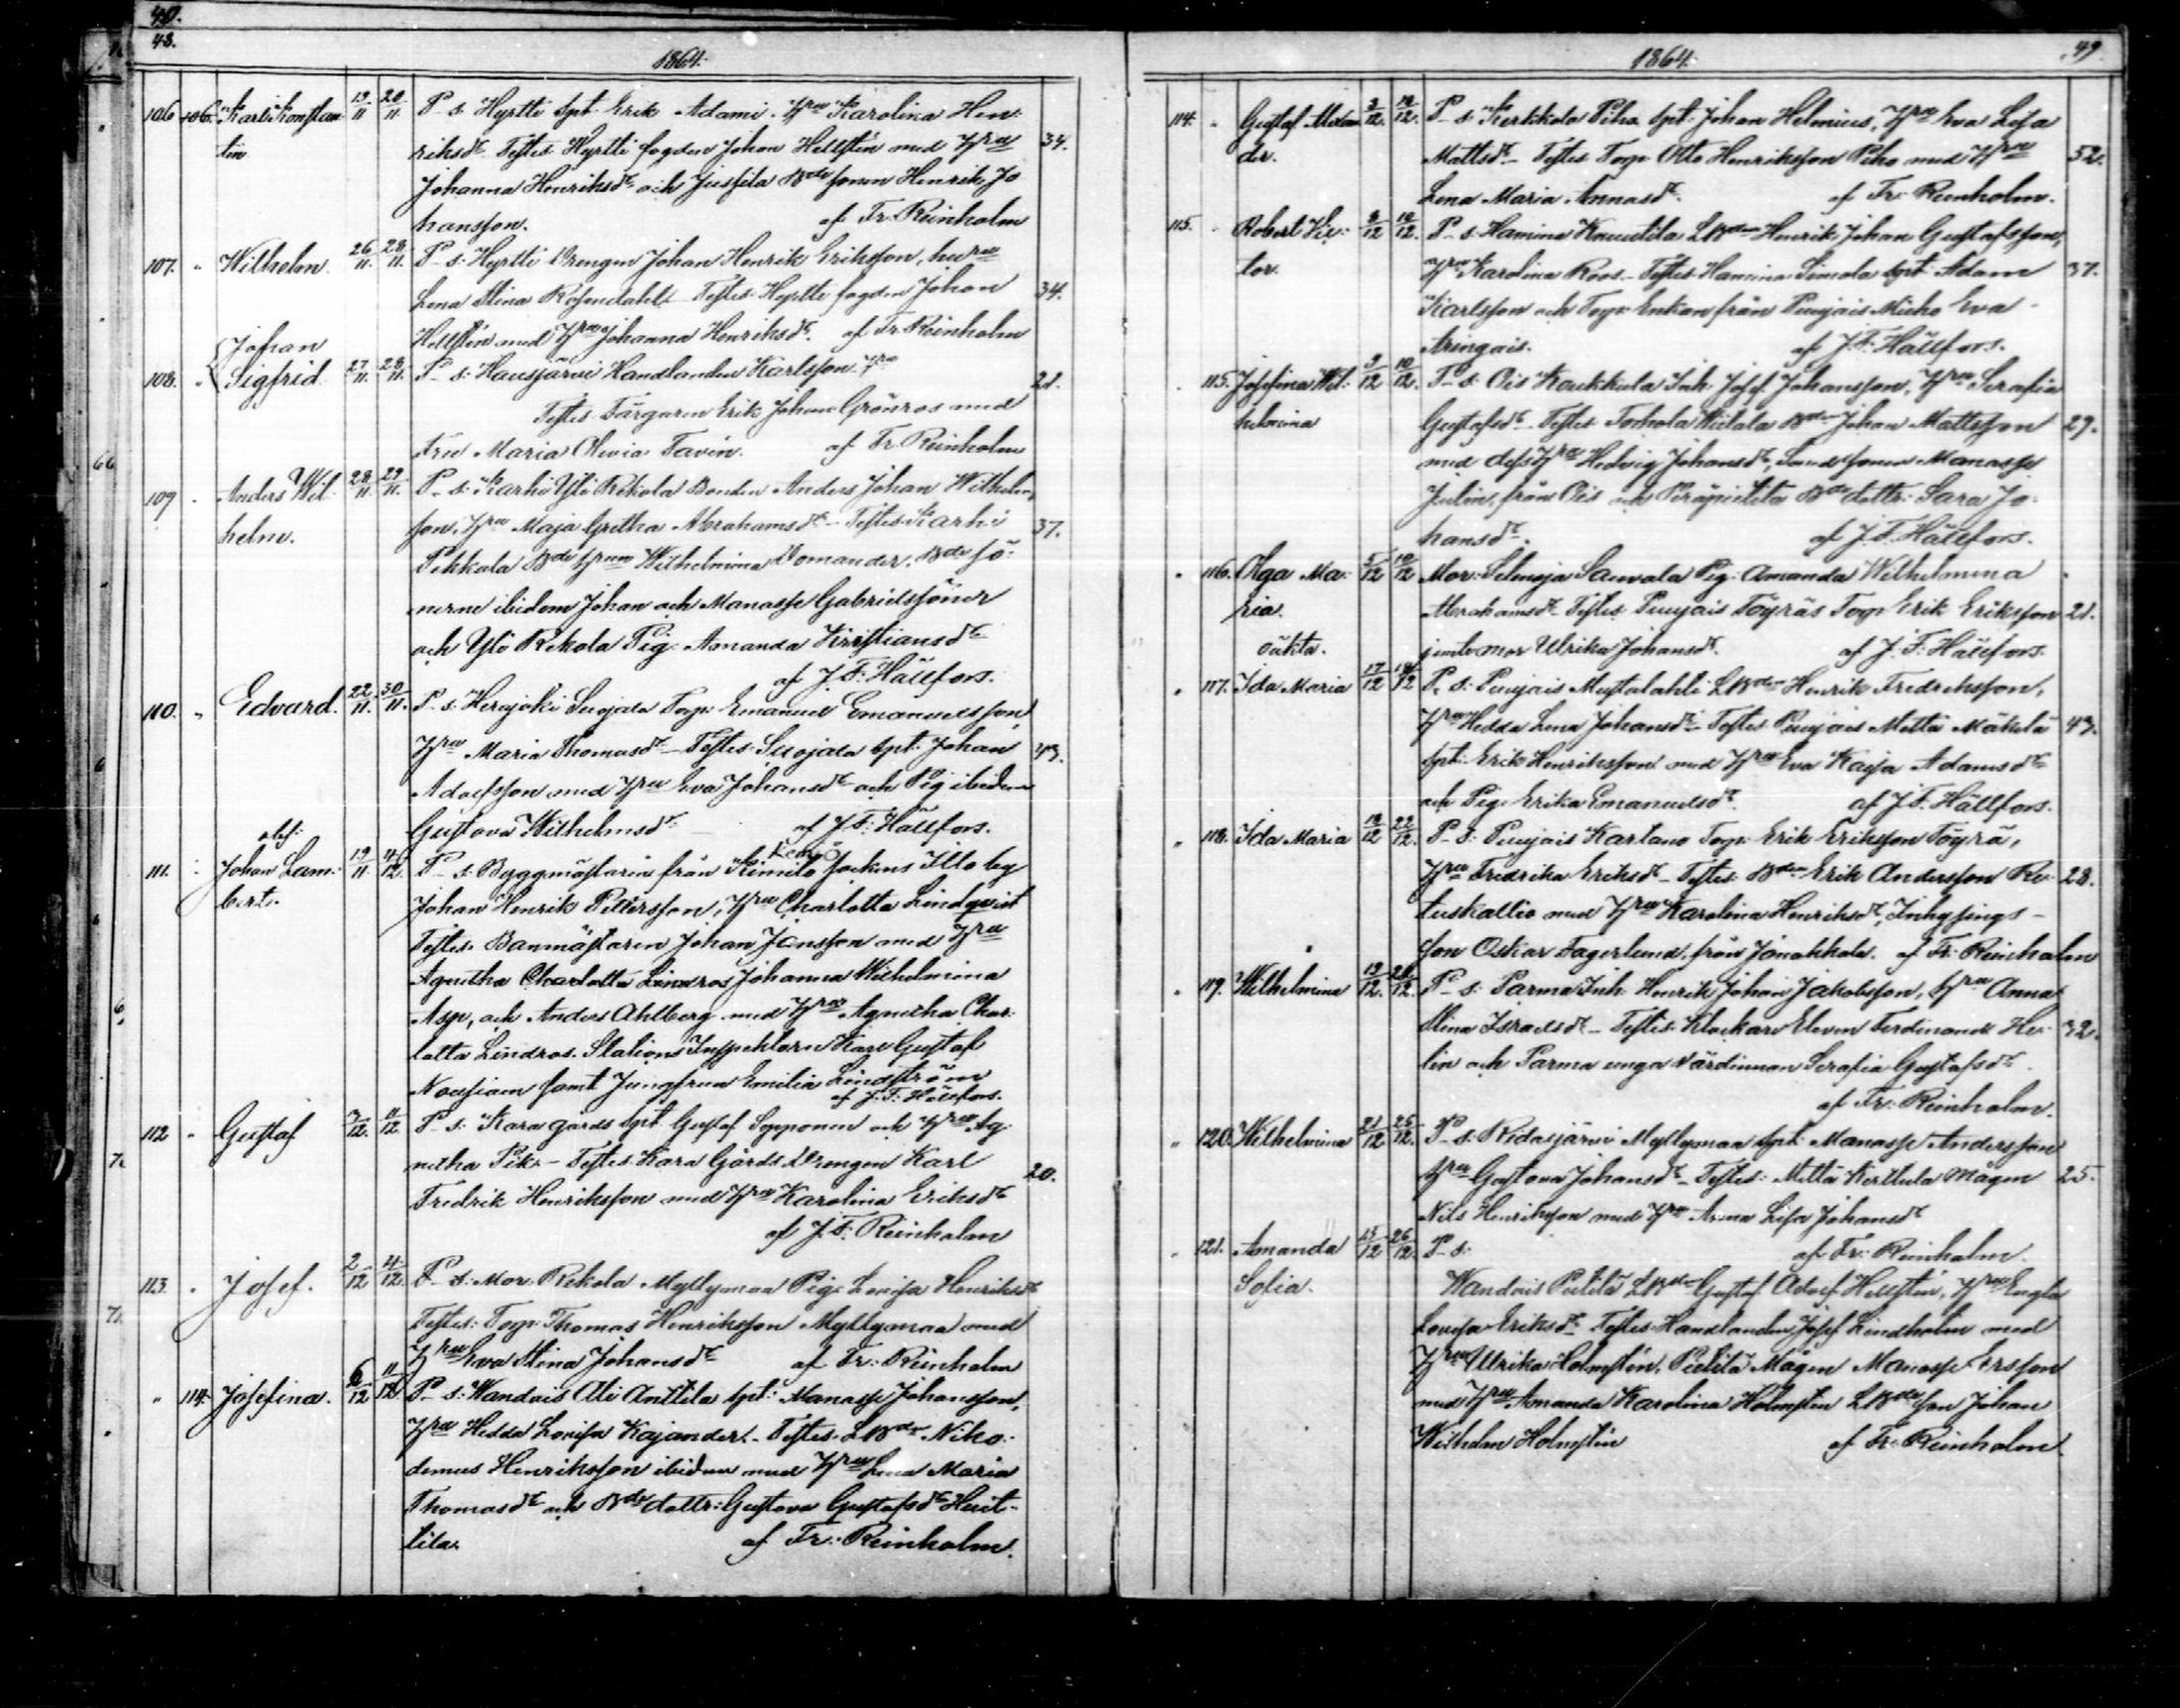 48.
1864.
106 106. Karl Konstan 19/11 20/11 P. s. Hyrtti Spt. Erik Adami. Hru Karolina Hen-
tin riksdr Testes Hyrtti fogden Johan Hellstén med Hru 34.
Johanna Henriksdr och Jussila Bde sonen Henrik Jo
hansson. af Fr. Reinholm
107. " Wilhelm. 26/11. 28/11. P. s. Hyrtti Drengen Johan Henrik Eriksson, hu
Lena Stina Rosendahl Testes Hyrtti fogden Johan 34.
Hellstén med Hru Johanna Henriksdr. af Fr. Reinholm
Johan
108. " Sigfrid. 27/11. 28/11. P. s. Hausjärvi Handlanden Karlsson
Testes Färgaren Erik Johan Grönroos med
Maria Olivia Tavin. af Fr. Reinholm
109 Anders Wil- 28/11. 29/11. P. s. Karhi Yli Rekola Bonden Anders Johan Wilhelms
helm. son, Hru Maja Gretha Abrahamsdr - Testes Karhi 37.
Pekkala Bde Hrun Wilhelmina Bde sö-
nerne ibidem Johan och Manasse Gabrielssöner
och Yli Rekola Pig. Amanda Kristiansdr
af J. F. Hällfors.
110. " Edvard. 22/11. 30/11. P. s. Herajoki Suojala Torp. Emanuel Emanuelsson
Hru Maria Thomasdr - Testes Suojala Spt. Johan 43.
Adolfsson med Hru Eva Johansdr och Pig ibidem
Gustava Wilhelmsdr af J. F. Hällfors.
111. Johan Lam- 19/11 4/12 P. s. Byggmästaren från Kimito Sockens by
bert. Johan Henrik Pettersson, Hru Charlotta Lindqvist
Testes Banmästaren Johan Jansson med Hru
Agnetha Charlotta Lindros Johanna Wilhelmina
Asp, och Anders Ahlberg med Hru Agnetha Char-
lotta Lindros. Stations Inspektorn Karl Gustaf
Nousiain samt Jungfrun Emilia Lindström
af J. F. Hällfors.
112 " Gustaf 3/12. 11/12 P. s. Kara gårds Spt Gustaf Sopponen och Hru Ag-
netha Pik - Testes Kara Gårds Drengen Karl 20.
Fredrik Henriksson med Hru Karolina Eriksdr
af J. F. Reinholm
113. " Josef. 2/12 4/12. P. s. Mor. Rekola Myllymaa Pig. Lovisa Henriksdr
Testes: Torp. Thomas Henriksson Myllymaa med
Hru Eva Stina Johansdr af Fr. Reinholm
" 114. Josefina. 6/12 11/12 P. s. Wandais Ali Anttila Spt. Manasse Johansson,
Hru Hedda Lovisa Kajander. - Testes LBde Niko-
demus Henriksson ibidem med Hru Lena Maria
Thomasdr och Bde dottr: Gustava Gustafsdr
tila. af Fr. Reinholm.
49.
1864.
114. " Gustaf Alexan 3/12. 10/12. P. s. Kerkkola Piha Spt. Johan Helenius, Hru Eva Lisa
der. Mattsdr - Testes Torp. Otto Henriksson Piho med Hru 52.
Lena Maria Annasdr. af Fr. Reinholm.
115. Robert Vic- 8/12 10/12. P. s. Hamina Knuutila LBden Henrik Johan Gustafsson,
tor. Hru Karolina Roos - Testes Hamina Simola Spt Adam 37.
Karlsson och Torp. Enkan från Punjais Eva
af J. F. Hällfors.
115. Josefina Wil- 9/12 10/12. P. s. Ois Koukkula Inh. Josef Johansson, Hru Serafia
helmina Gustafsdr - Testes Torhola Bden Johan Mattsson 29.
med dess Hru Hedvig Johansdr, sonen Manasse
Julin från Ois och Bde dottr: Sara Jo-
hansdr. af J. F. Hällfors.
" 116. Olga Ma- 5/12 10/12 Mor: Selmoja Sauvala Pig. Amanda Wilhelmina
ria. Abrahamsdr. Testes Punjais Töyräs Torp Erik Eriksson 21.
oäkta. mor Ulrika Johansdr. af J. F. Hällfors.
" 117. Ida Maria 17/12 18/12 P. s. Punjais Myttalahti LBden Henrik Fredriksson,
Hru Hedda Lena Johansdr - Testes Punjais Mäkelä 43.
Spt. Erik Henriksson med Hru Eva Kajsa Adamsdr
och Pig. Erika Emanuelsdr. af J. F. Hällfors.
" 118. Ida Maria 18/12 22/12. P. s. Punjais Kartano Torp. Erik Eriksson Töyrä,
Hru Fredrika Eriksdr - Testes Bden Erik Andersson Ro- 28.
tuskallio med Hru Karolina Henriksdr, Inhysings-
son Oskar Fagerlund från Jonakkala. af Fr. Reinholm
" 119. Wilhelmina 19/12. P. s. Parma Inh. Henrik Johan Jakobsson, Hru Anna
Stina Israelsdr - Testes Klockare Eleven Ferdinand He- 32.
lin och Parma unga värdinnan Serafia Gustafsdr.
af Fr. Reinholm.
" 120 Wilhelmina 21/12 26/12. P. s. Ridasjärvi Myllymaa Spt. Manasse Andersson
Hru Gustava Johansdr - Testes: Kerttula Mågen 25.
Nils Henriksson med Hru Anna Lisa Johansdr
" 121. Amanda 15/12 26/12. P. s. af Fr. Reinholm.
Sofia. Wandais Pietilä LBden Gustaf Adolf Hellstén, Hru Engla
Lovisa Eriksdr Testes Handlanden Josef Lindholm med
Hru Ulrika Holmstén. Pietilä Mågen Manasse Ersson
med Hru Amanda Karolina Holmsten LBde son Johan
Wilhelm Holmstén af Fr. Reinholm.